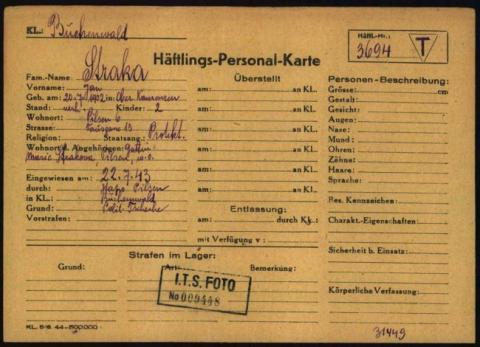 KL.: Buchenwald
Häftl.-Nr.: 3694 T
Häftlings-Personal-Karte
Fam.-Name: Straka
Vorname: Jan
Geb. am: 20.7.1902 in: Ober
Stand: verh. Kinder: 2
Wohnort: Pilsen 6
Strasse: 13
Religion: Staatsang.: Protekt.
Wohnort d. Angehörigen: Gattin:
Marie Strakova, Pilsen, w.o.
Eingewiesen am: 22.7.43
durch: Pilzen
in KL.: Buchenwald
Grund: Polit. Tscheche
Vorstrafen:
Überstellt
am: an KL.
am: an KL.
am: an KL.
am: an KL.
am: an KL.
am: an KL.
Entlassung:
am: durch KL.:
mit Verfügung v.:
Personen-Beschreibung:
Grösse: cm
Gestalt:
Gesicht:
Augen:
Nase:
Mund:
Ohren:
Zähne:
Haare:
Sprache:
Bes. Kennzeichen:
Charakt.-Eigenschaften:
Sicherheit b. Einsatz:
Körperliche Verfassung:
Strafen im Lager:
Grund: Art: Bemerkung:
I.T.S. FOTO
No 009448
31449